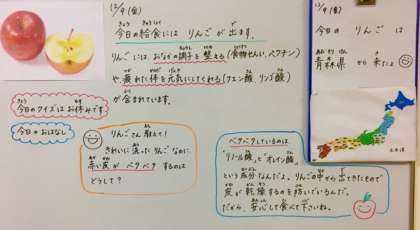 12/9(金)
今日の給食には りんごが 出ます。
りんごには、おなかの調子を整える(食物せんい、ペクチン)
や 疲れた体を元気にしてくれる(クエン酸 リンゴ酸)
が含まれています。
今日のクイズはお休みです
今日のおはなし
りんごさん教えて!
きれいに洗ったりんごなのに、
赤い皮が ベタベタ するのは
どうして?
ベタベタしているのは、
"リノール酸"と"オレイン酸"
という成分なんだよ。りんごの中から出てきたもので
皮が乾燥するのを防いでいるんだ。
だから、安心して食べて下さいね。
12/9(金)
今日 の りんご は
青森県 から 来たよ